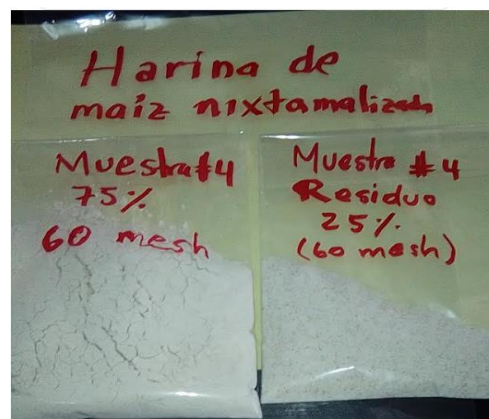 Harina de
maiz nixtamalizada
Muestra #4
75%
60 mesh
Muestra #4
Residuo
25%.
(60 mesh)